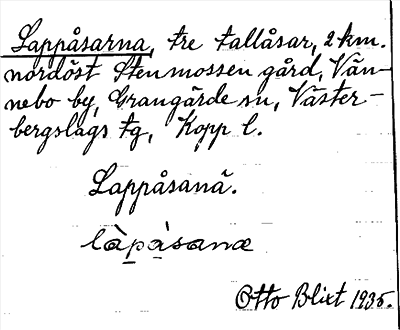 Lappåsarna, tre tallåsar, 2 km.
nordöst Stenmossen gård, Vän-
nebo by, Grangärde sn, Väster-
bergslags tg, Kopp l.
Lappåsanä.
làpàsanæ
Otto Blixt 1935.